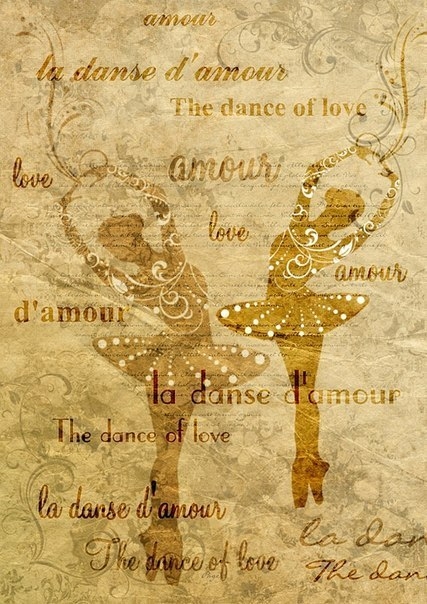 amour
la danse d'amour
The dance of love
love
amour
love
amour
d'amour
la danse d'amour
The dance of love
la danse d'amour
The dance of love
la dan
The dan